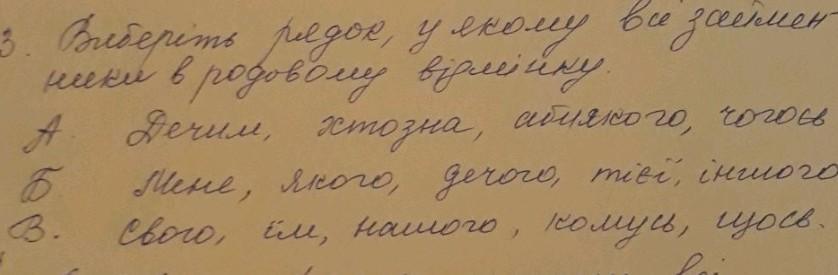 3. Виберіть рядок, у якому всі займен-
ники в родовому відмінку.
А. Дечим, хтозна, абиякого, чогось
Б Мене, якого, дечого, тієї, іншого
В. Свого, їм, нашого, комусь, щось.